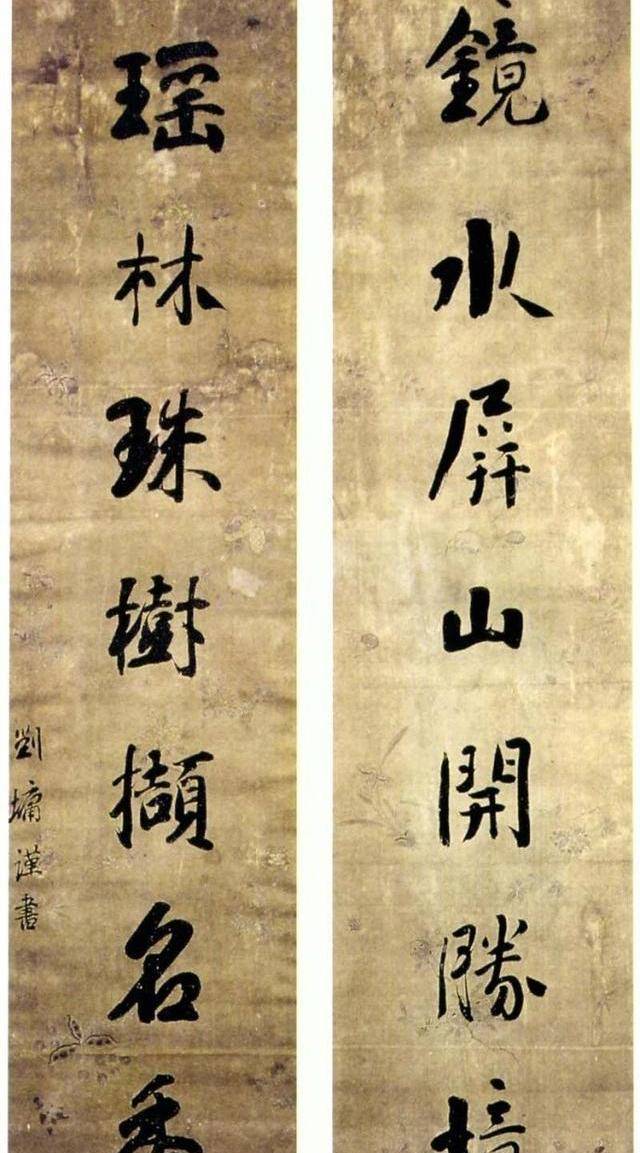 鏡水屏山開勝境
瑶林珠樹擷名
劉墉謹書